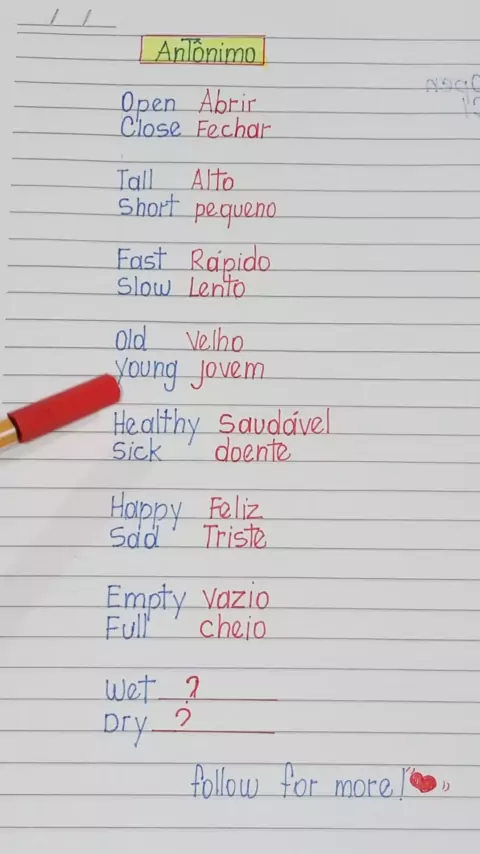 / /
Antônimo
Open Abrir
Close Fechar
Tall Alto
Short pequeno
Fast Rápido
Slow Lento
Old Velho
young jovem
Healthy Saudável
Sick doente
Happy Feliz
Sad Triste
Empty Vazio
Full cheio
Wet ?
Dry ?
follow for more!